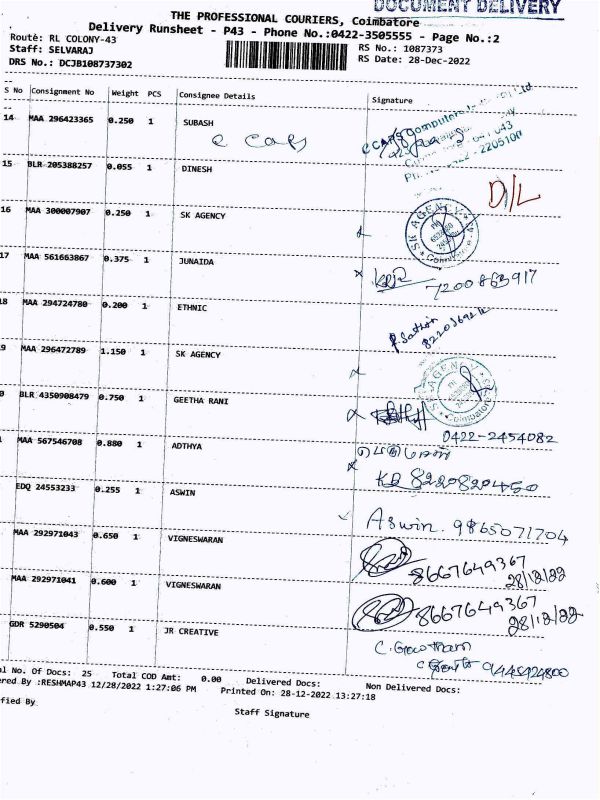 DOCUMENT DELIVERY
THE PROFESSIONAL COURIERS, Coimbatore
Delivery Runsheet - P43 - Phone No.:0422-3505555 - Page No.:2
Route: RL COLONY-43
RS No.: 1087373
Staff: SELVARAJ
RS Date: 28-Dec-2022
DRS No.: DCJB108737302
S No Consignment No Weight PCS Consignee Details Signature
14 MAA 296423365 0.250 1 SUBASH
e cars
15 BLR 205388257 0.055 1 DINESH
D/L
16 MAA 300007907 0.250 1 SK AGENCY
SK AGENCY Coimbatore
17 MAA 561663867 0.375 1 JUNAIDA
7200863917
18 MAA 294724780 0.200 1 ETHNIC
9 MAA 296472789 1.150 1 SK AGENCY
SK AGENCY Coimbatore
0 BLR 4350908479 0.750 1 GEETHA RANI
0422-2454082
MAA 567546708 0.880 1 ADTHYA
8220820450
EDQ 24553233 0.255 1 ASWIN
Aswin. 9865071704
MAA 292971043 0.650 1 VIGNESWARAN
8667649367
28/12/22
MAA 292971041 0.600 1 VIGNESWARAN
8667649367
28/12/22
GDR 5290504 0.550 1 JR CREATIVE
C. Gowtham
al No. Of Docs: 25 Total COD Amt: 0.00 Delivered Docs: Non Delivered Docs:
ered By :RESHMAP43 12/28/2022 1:27:06 PM Printed On: 28-12-2022 13:27:18
fied By Staff Signature